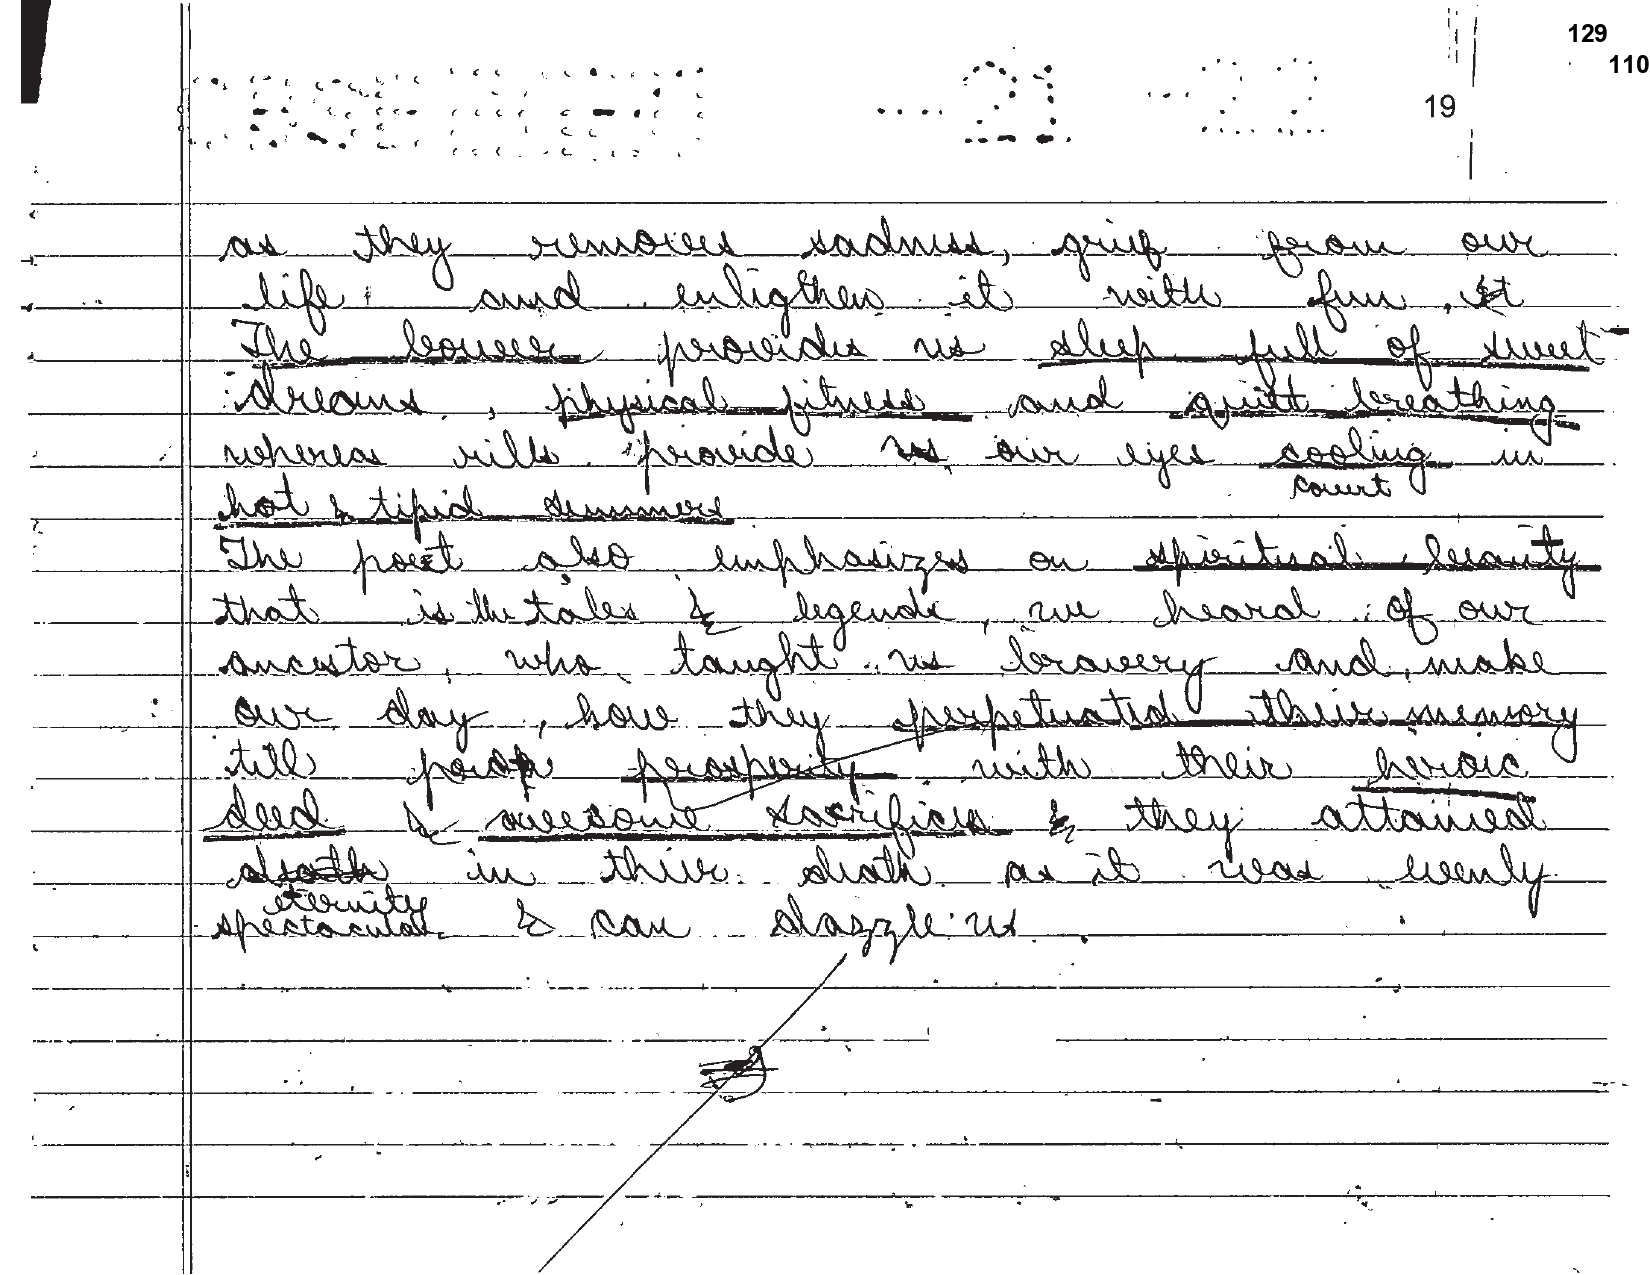 129
110
21
19
as they removes sadness, grief from our
life and enligthen it with fun, it
The bower provides us sleep full of sweet
dreams, physical fitness and quitt breathing
whereas rills provide us our eyes cooling in
court
hot & tipid summers
The poet also emphasizes on spiritual beauty
that is the tales & legends, we heard of our
ancestor, who taught us bravery and make
our day, how they perpetuated their memory
till prosperity with their heroic
deed & awesome sacrifices & they attained
death in thier death as it was evenly
eternity
spectacular & can dazzle us.